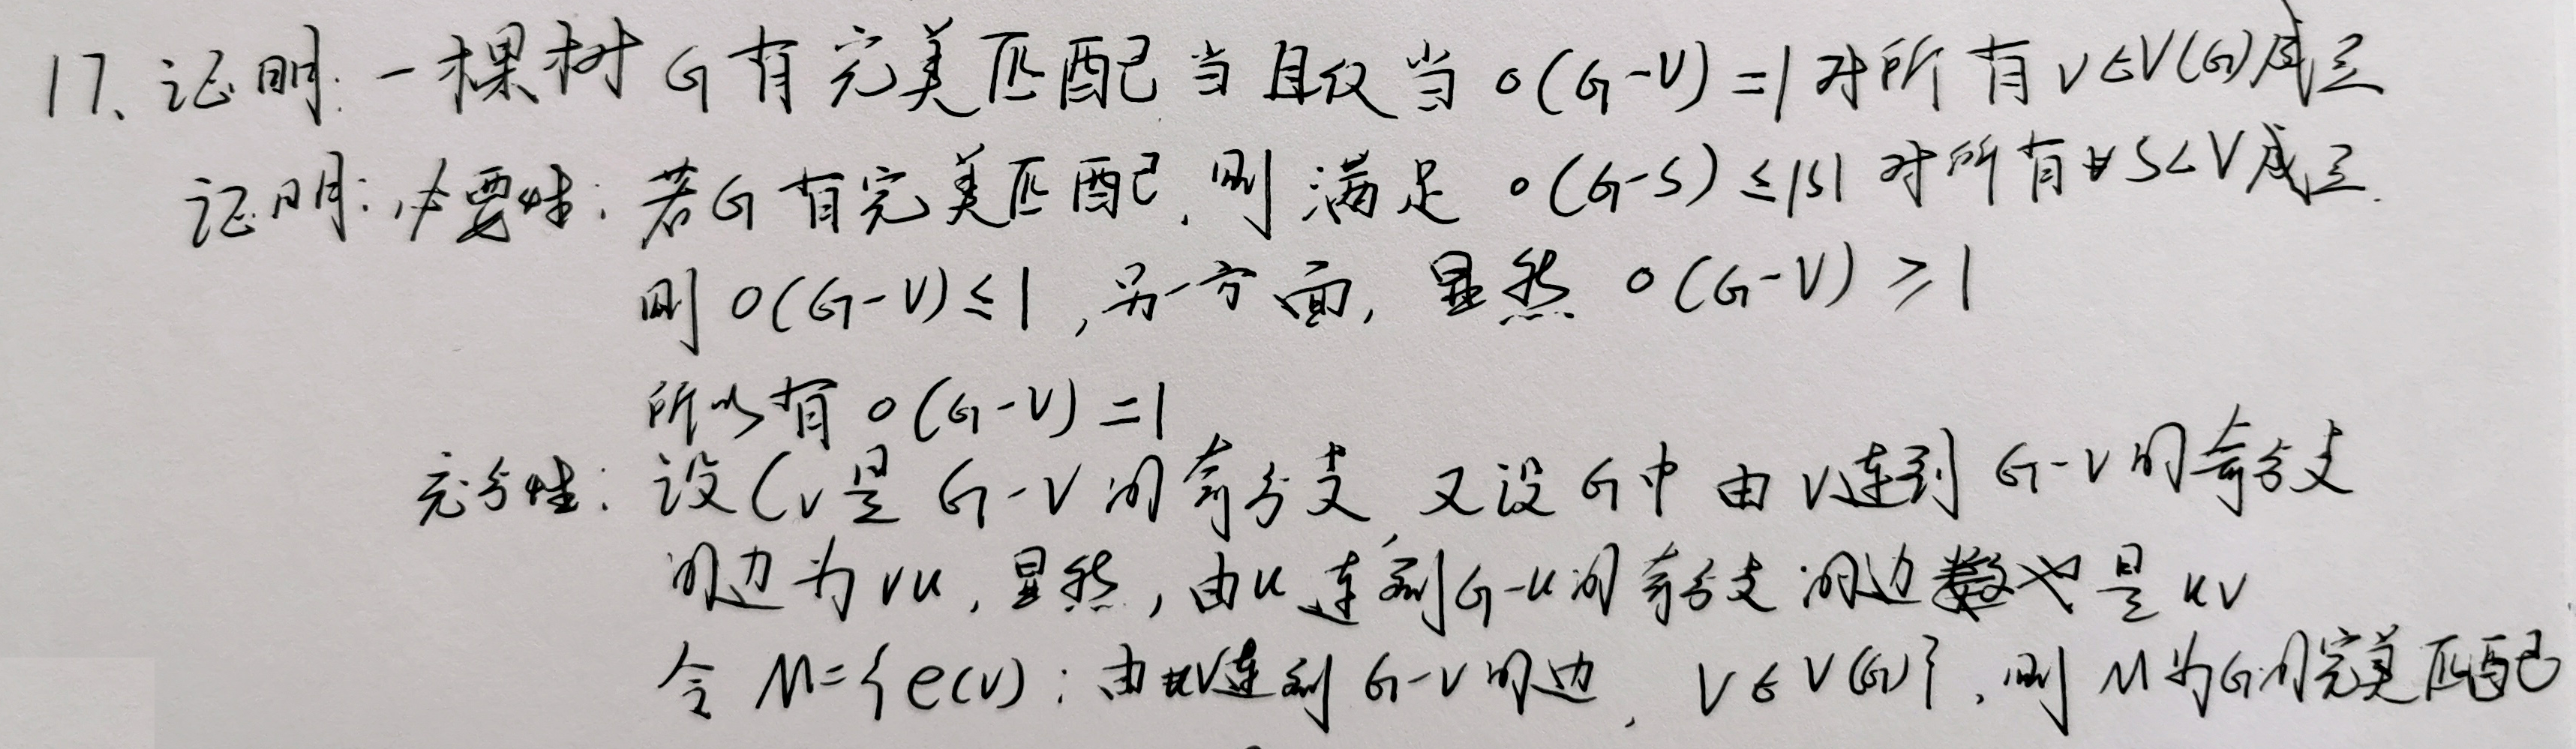 17、证明:一棵树G有完美匹配当且仅当 o(G-v)=1对所有v∈V(G)成立
证明:必要性:若G有完美匹配,则满足 o(G-S)≤|S| 对所有∀S⊂V成立.
则 o(G-v)≤1,另一方面,显然 o(G-v)≥1
所以有 o(G-v)=1
充分性:设Cv是 G-v 的奇分支,又设G中由v连到 G-v的奇分支
的边为vu,显然,由u连到G-u的奇分支的边也是uv
令 M={e(v):由v连到 G-v的边,v∈V(G)},则M为G的完美匹配